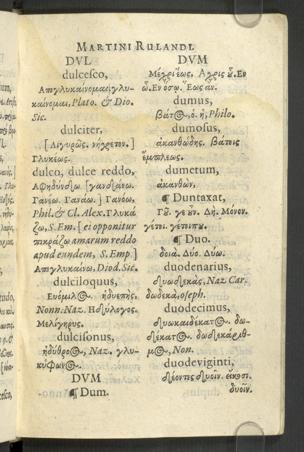 MARTINI RULANDI.
DVL
dulcesco,
Απογλυκαίνομαι, γλυ-
καίνομαι, Plato. & Dio.
Sic.
dulciter,
[Λιγυρῶς. νήγρετον.]
Γλυκέως.
dulco, dulce reddo,
Αφηδυνω [γανδάνω.
Γανόω. Γανάω.] Γανόω,
Phil. & Cl. Alex. Γλυκά
ζω, S. Em. [ei opponitur
πικράζω amarum reddo
apud eundem, S. Emp.]
Απογλυκαίνω, Diod. Sic.
dulciloquus,
Εὐόμιλος. ἡδυεπής,
Nonn. Naz. Ηδύλογος.
Μελίγηρυς.
dulcisonus,
ἡδύθροος, Naz. γλυ-
κύφωνος.
DVM
¶ Dum.
DVM
Μέχρι ἕως. Αχρις οὗ. Εν
ᾧ. Εν ὅσῳ. Ἕως ἄν.
dumus,
βάτος, ὁ. ἡ, Philo.
dumosus,
ἀκανθώδης. βάτοις
ἔμπλεως.
dumetum,
ἀκανθών.
¶ Duntaxat,
Γοῦ. γὲ γε. Δή. Μόνον.
¶ Duo.
δοιά. Δύο. Δύω.
duodenarius,
δυωδεκάς, Naz. Car.
δωδεκάς, Joseph.
duodecimus,
δυωκαιδέκατος. δω-
δέκατος. δωδεκάριθ-
μος, Non.
duodeviginti,
δέοντες δυοῖν. εἴκοσι
δυοῖν.